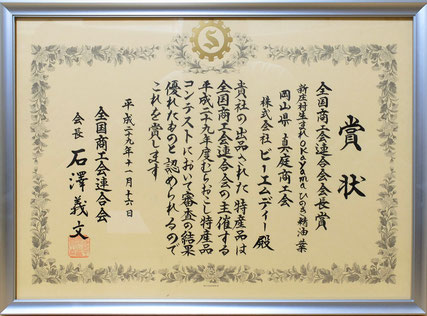 賞状
全国商工会連合会会長賞
新庄村生まれOKAYAMAひのき精油 葉
岡山県 真庭商工会
株式会社 ビーエムディー 殿
貴社の出品された特産品は
全国商工会連合会の主催する
平成二十九年度むらおこし特産品
コンテストにおいて審査の結果
優れたものと認められるので
これを賞します
平成二十九年十一月十六日
全国商工会連合会
会長 石澤義文